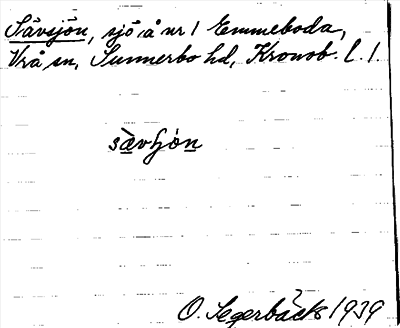 Sävsjön, sjö å nr 1 Emmeboda,
Vrå sn, Sunnerbo hd, Kronob. l.
sàvʃön
O. Segerbäck 1939